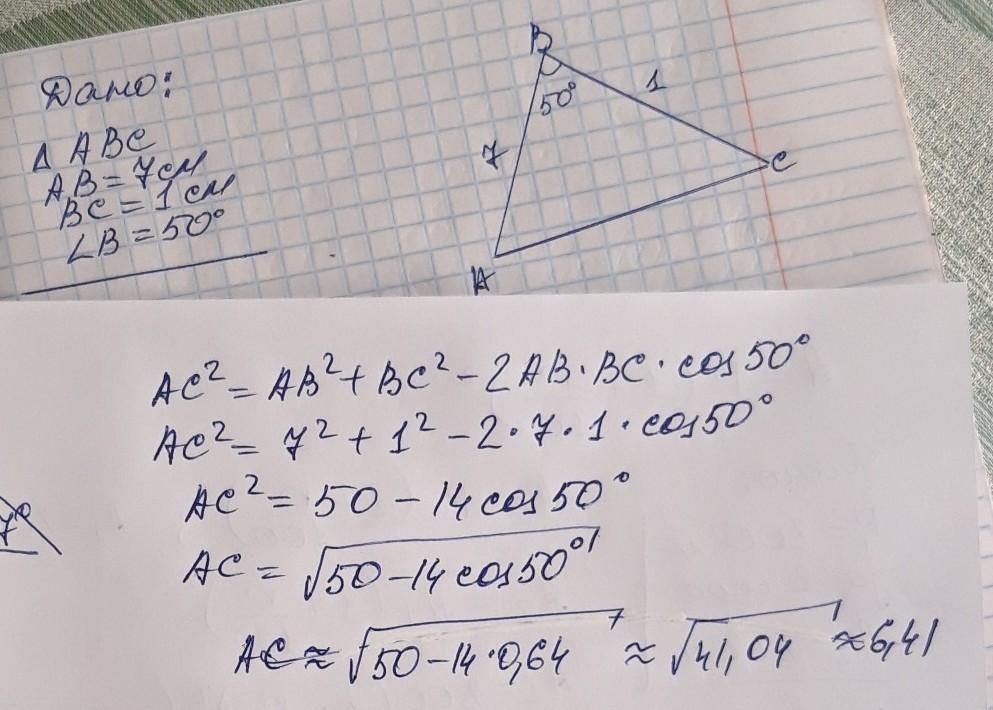 Дано:
Δ ABC
AB = 7 см
BC = 1 см
∠B = 50°
B
50°
1
7
C
A
AC² = AB² + BC² - 2AB · BC · cos 50°
AC² = 7² + 1² - 2 · 7 · 1 · cos 50°
AC² = 50 - 14 cos 50°
7°
AC = √50 - 14 cos 50°
AC ≈ √50 - 14 · 0,64 ≈ √41,04 ≈ 6,41